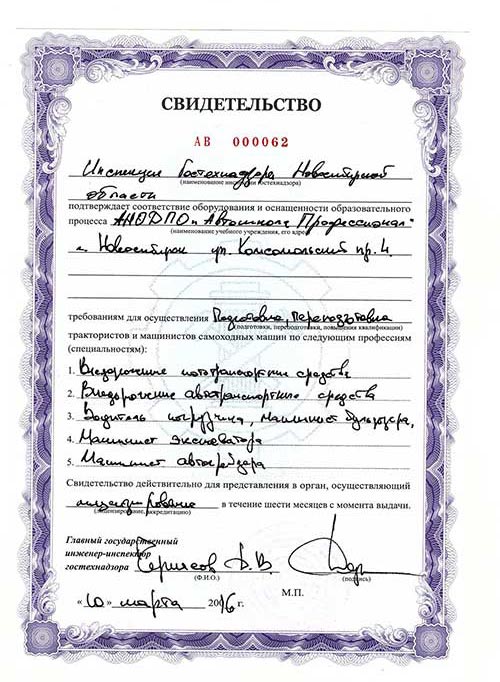 СВИДЕТЕЛЬСТВО
АВ 000062
Инспекция Гостехнадзора Новосибирской
(наименование инспекции гостехнадзора)
области
подтверждает соответствие оборудования и оснащенности образовательного
процесса АНОДПО „Автошкола Профессионал"
(наименование учебного учреждения, его адрес)
г. Новосибирск ул. Комсомольский пр. 4
требованиям для осуществления Подготовка, переподготовка
(подготовки, переподготовки, повышения квалификации)
трактористов и машинистов самоходных машин по следующим профессиям
(специальностям):
1. Внедорожные мототранспортные средства
2. Внедорожные автотранспортные средства
3. Водитель погрузчика, машинист бульдозера,
4. Машинист экскаватора
5. Машинист автогрейдера
Свидетельство действительно для представления в орган, осуществляющий
лицензирование в течение шести месяцев с момента выдачи.
(лицензирование, аккредитацию)
Главный государственный
инженер-инспектор
гостехнадзора Д.В.
(Ф.И.О.) (подпись)
М.П.
« 10 » марта 2016 г.